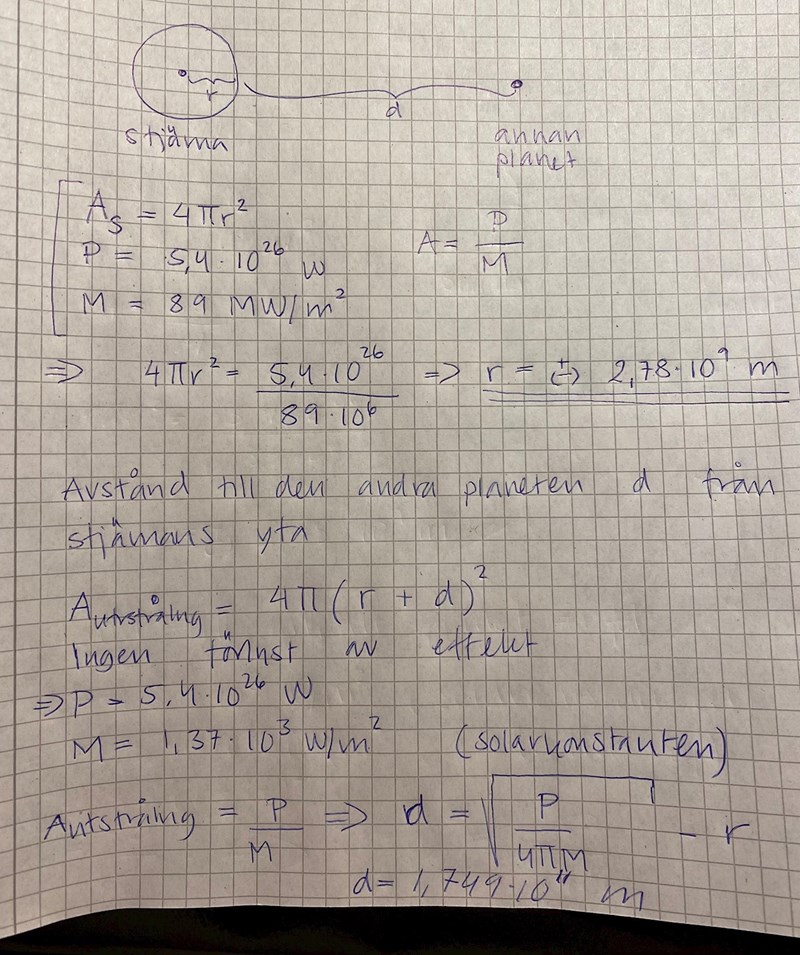 r
d
stjärna
annan
planet
A_S = 4πr²
P = 5,4·10²⁶ W
M = 89 MW/m²
A = P/M
=> 4πr² = 5,4·10²⁶/89·10⁶ => r = (±) 2,78·10⁹ m
Avstånd till den andra planeten d från
stjärnans yta
A_utstrålng = 4π(r + d)²
Ingen förlust av effekt
=> P = 5,4·10²⁶ W
M = 1,37·10³ W/m² (solarkonstanten)
A_utstrålng = P/M => d = √(P/4πM) - r
d = 1,749·10¹¹ m